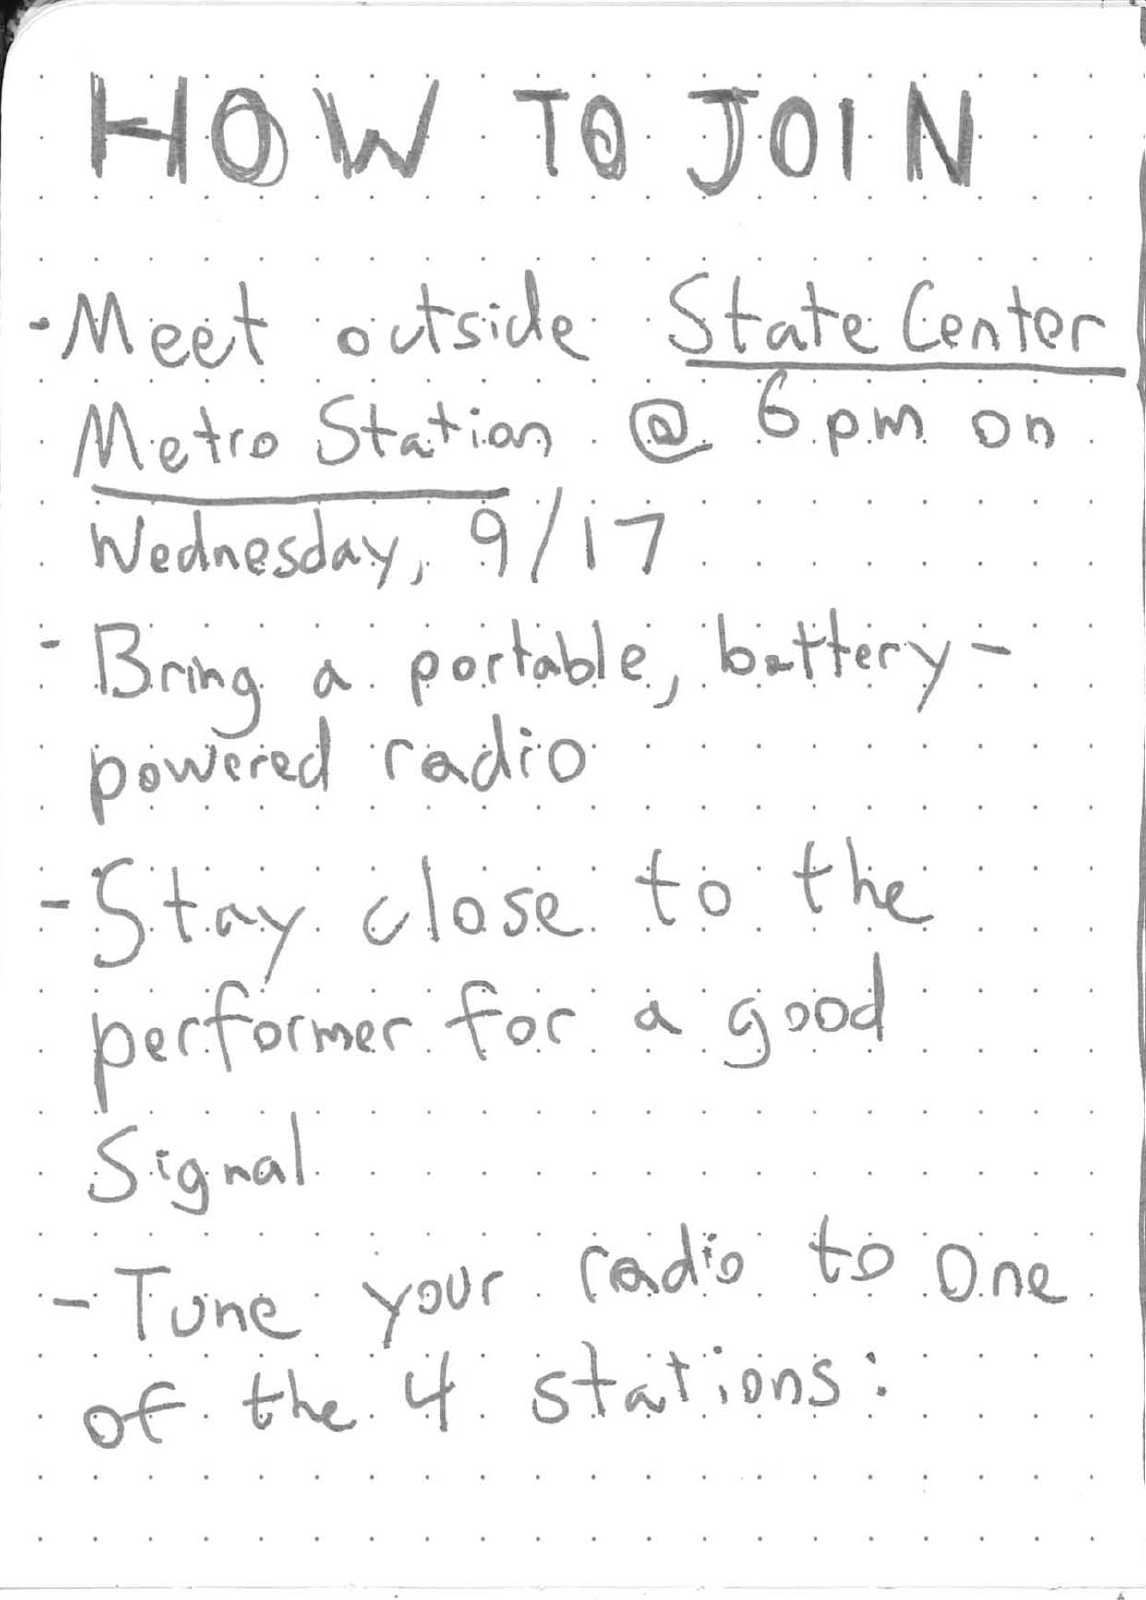 HOW TO JOIN
- Meet outside State Center
Metro Station @ 6pm on
Wednesday, 9/17
- Bring a portable, battery-
powered radio
- Stay close to the
performer for a good
Signal
- Tune your radio to one
of the 4 stations: